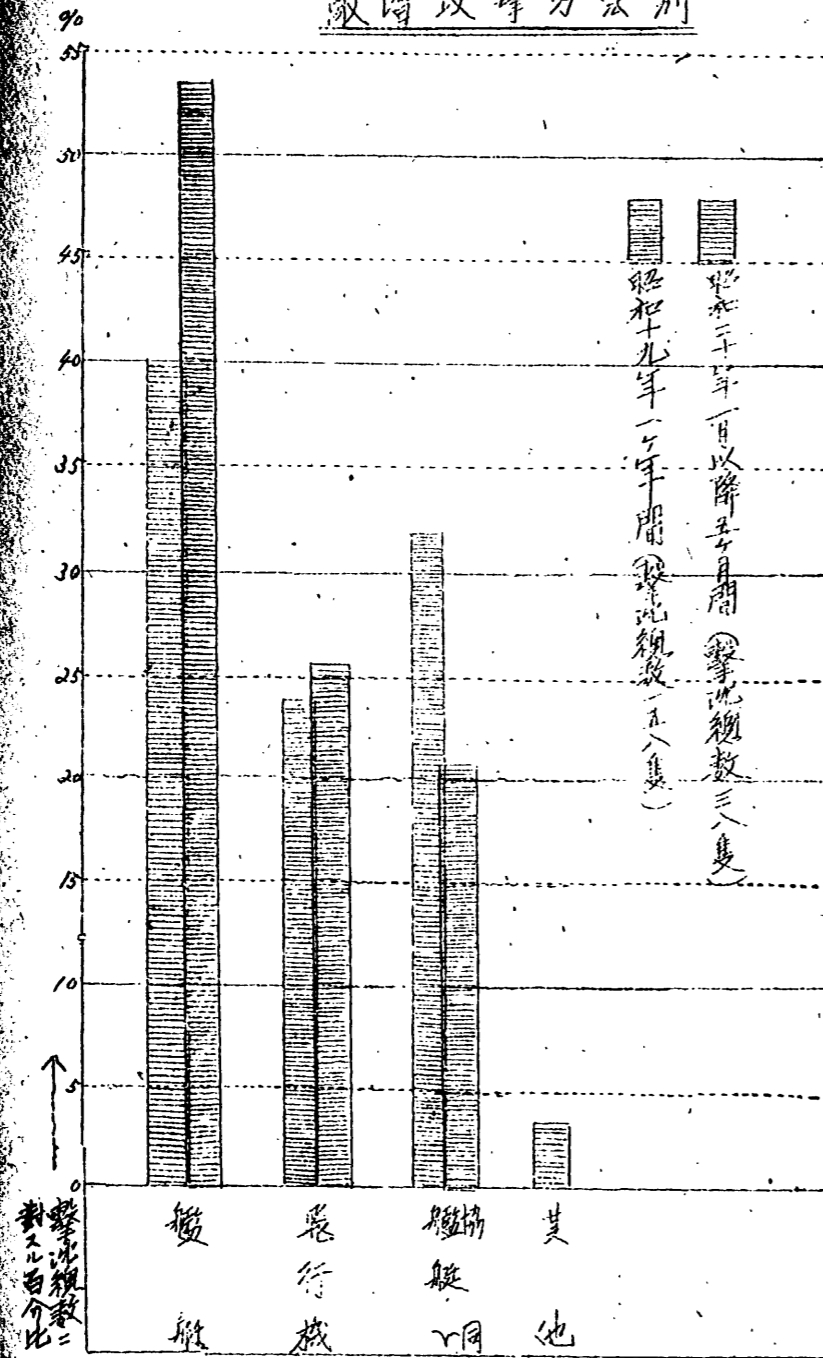 敵潜攻撃方法別
%
55
50
45
40
35
30
25
20
15
10
5
0
昭和二十年一月以降五ヶ月間（撃沈総数三八隻）
昭和十九年一ヶ年間（撃沈総数一五八隻）
撃沈総数ニ
對スル百分比
艦艇
飛行機
艦艇
協同
其他